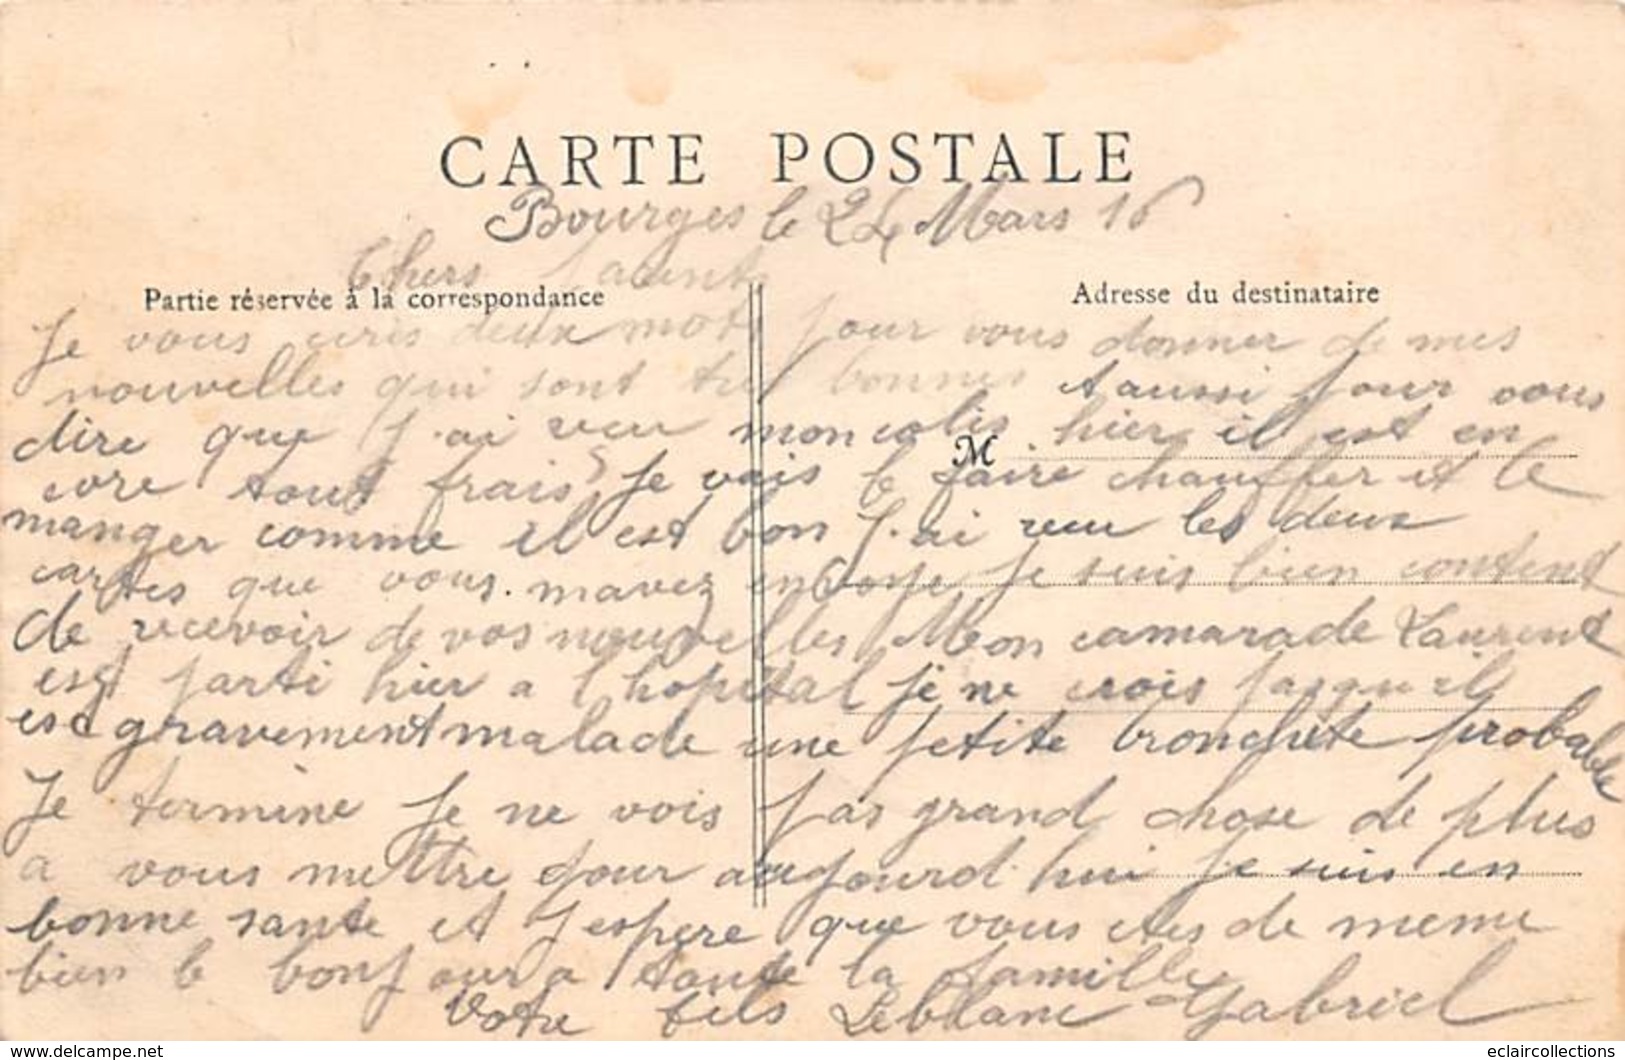 CARTE POSTALE
Bourges le 24 Mars 16
Chers Parents
Partie réservée à la correspondance
Adresse du destinataire
Je vous ecris deux mots pour vous donner de mes
nouvelles qui sont tres bonnes et aussi pour vous
dire que j.ai recu mon colis hier il est en
M
core tout frais, je vais le faire chauffer et le
manger comme il est bon J.ai recu les deux
cartes que vous mavez envoye je suis bien content
de recevoir de vos nouvelles Mon camarade Laurent
est parti hier a l hopital je ne crois pas qu il
est gravement malade une petite bronchite probable
Je termine je ne vois pas grand chose de plus
a vous mettre pour aujourd hui je suis en
bonne sante et j espere que vous etes de meme
bien le bonjour a toute la famille
Votre fils Leblanc Gabriel
www.delcampe.net
eclaircollections